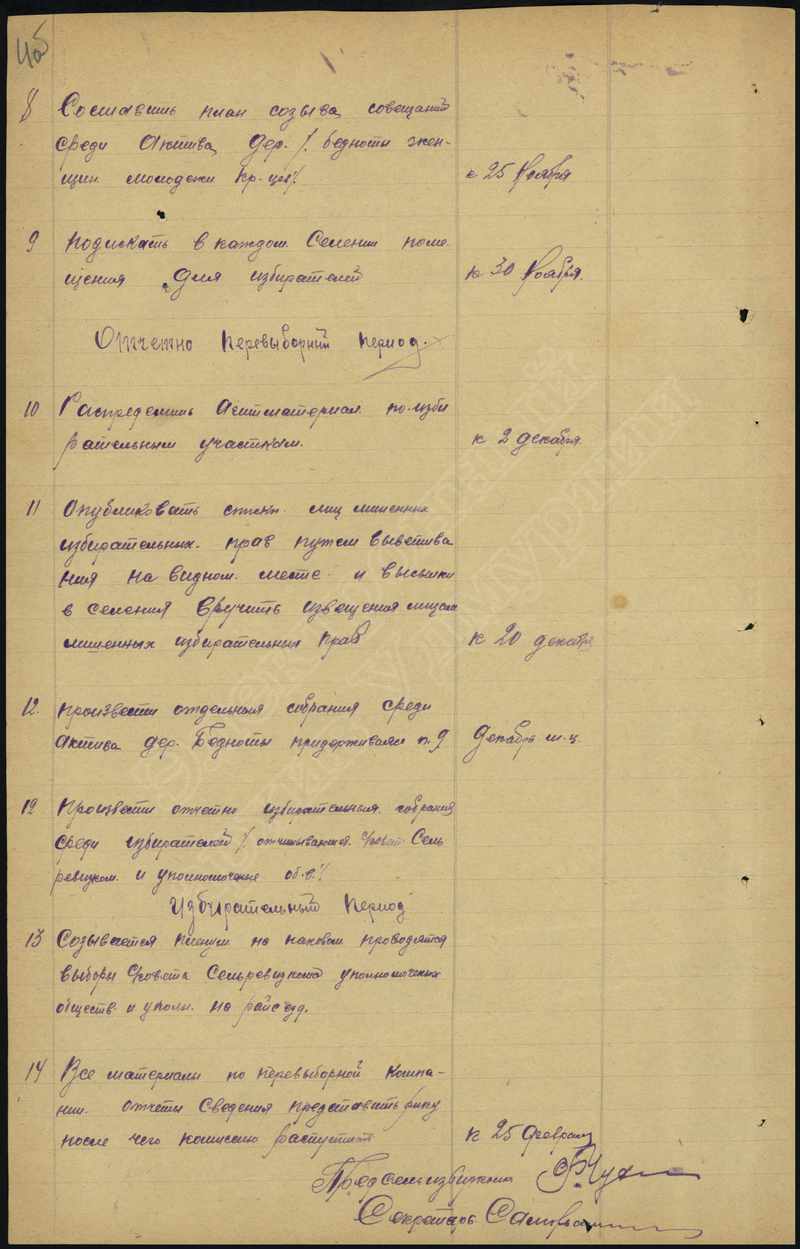 8 Составить план созыва совещаний
среди актива дер. /. бедноты жен-
щин молодежи кр-цы/.
к 25 ноября
9 Подискать в каждом Селении поме
щения для избирателей
к 30 ноября.
Отчетно перевыборный период.
10 Распределить агитматериал по изби
рательным участкам.
к 2 декабря.
11 Опубликовать списки лиц лишенных
избирательных прав путем вывешива
ния на видном месте и высылки
в селения вручить извещения лицам
лишенных избирательных прав
к 20 декабря
12. Произвести отдельныя собрания среди
актива дер. Бедноты придерживаясь п. 9
декабрь м-ц.
12 Произвести отчетно избирательныя собрания
среди избирателей / отчитываются Совет Сель
ревизком. и уполномоченые об-в./
Избирательный период
13 Созывается пленум на каковом проводятся
выборы Совета Сельревизкома уполномоченых
обществ и уполн. на райсъезд.
14 Все материалы по перевыборной компа-
нии отчеты Сведения представить рику
после чего комиссию распустить
к 25 февраля
Пред сельизбиркома
Секретарь